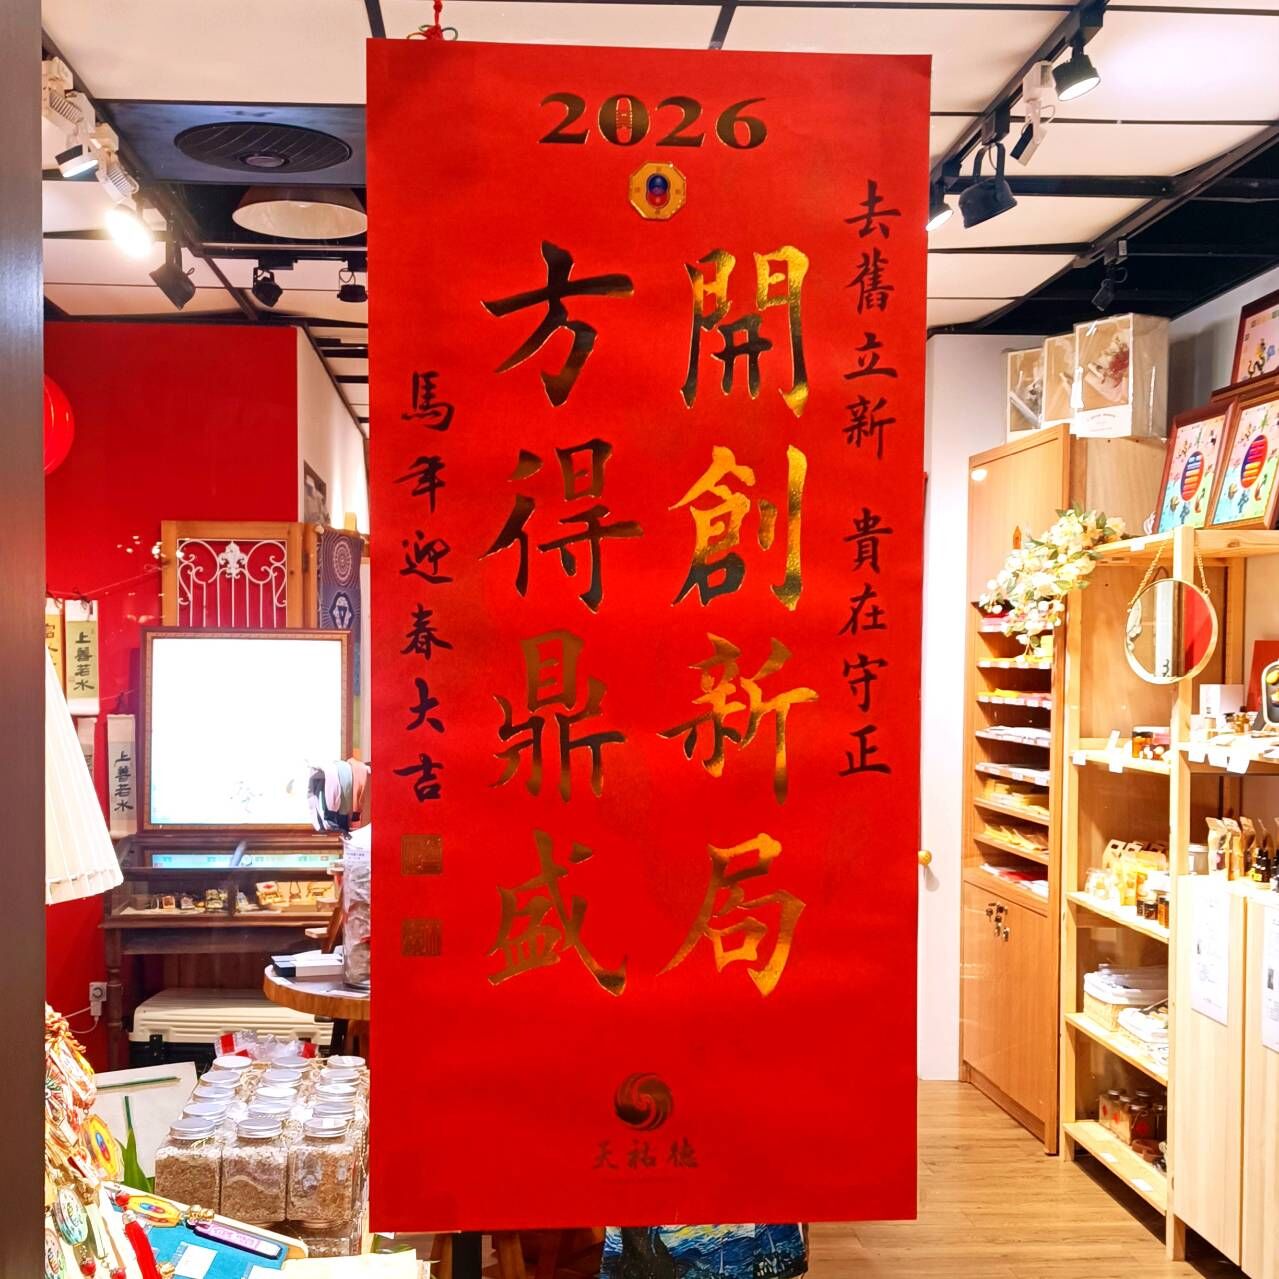 2026
去舊立新 貴在守正
開創新局
方得鼎盛
馬年迎春大吉
天祐德
上善若水
上善若水